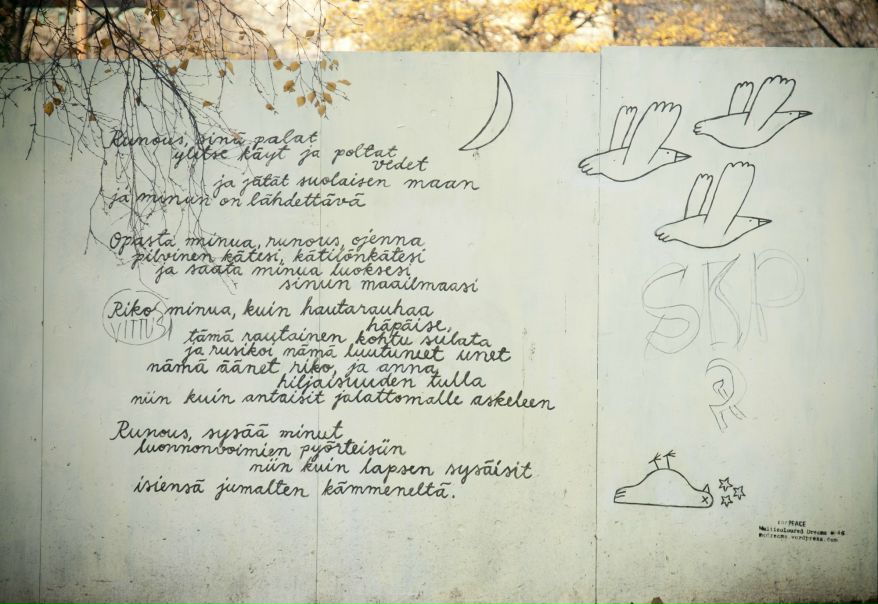 Runous, sinä palat
ylitse käyt ja poltat
vedet
ja jätät suolaisen maan
ja minun on lähdettävä
Opasta minua, runous, ojenna
pilvinen kätesi, kätilönkätesi
ja saata minua luoksesi
sinun maailmaasi
Riko minua, kuin hautarauhaa
häpäise,
VITTUSI
tämä rautainen kohtu sulata
ja rusikoi nämä luutuneet unet
nämä äänet riko, ja anna
hiljaisuuden tulla
niin kuin antaisit jalattomalle askeleen
Runous, sysää minut
luonnonvoimien pyörteisiin
niin kuin lapsen sysäisit
isiensä jumalten kämmeneltä.
SKP
PEACE
Multicoloured Dreams
mcdreams.wordpress.com